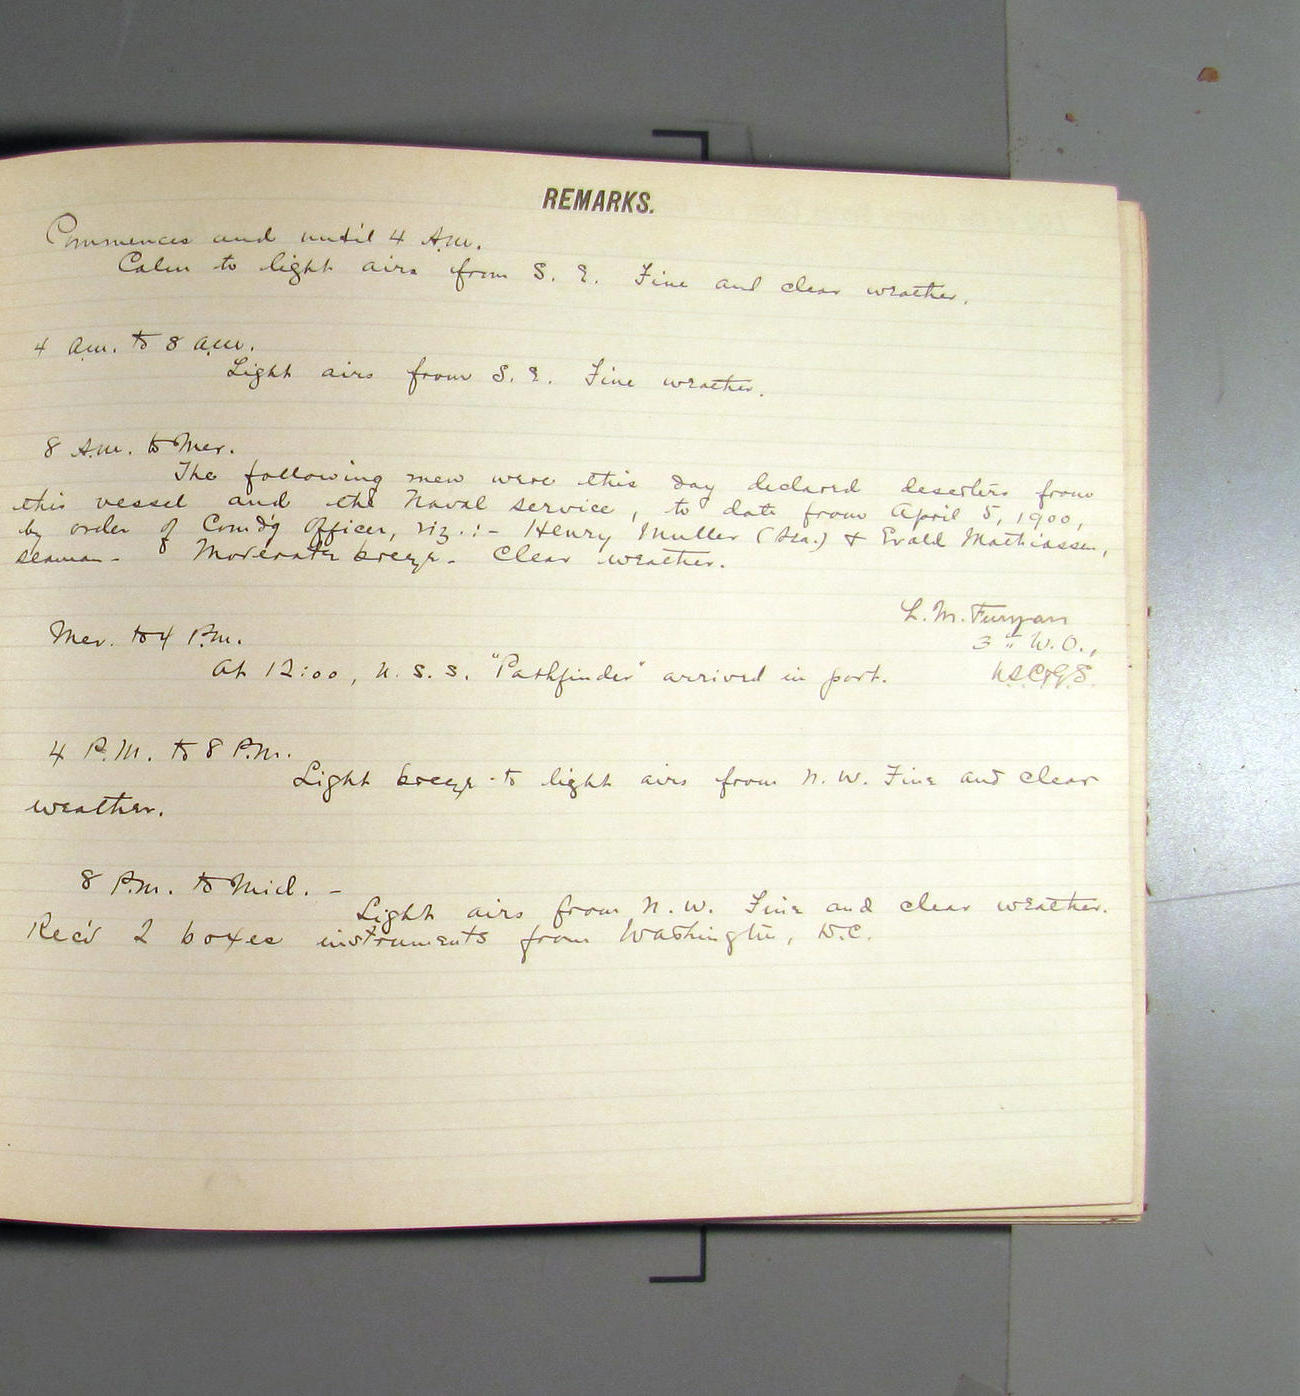 REMARKS.
Commences and until 4 A.m.
Calm to light airs from S. E. Fine and clear weather.
4 a.m. to 8 a.m.
Light airs from S. E. Fine weather.
8 A.m. to Mer.
The following men were this day declared deserters from
this vessel and the Naval service, to date from April 5, 1900,
by order of Comd'g Officer, viz.:- Henry Muller (Sea.) & Evald Mathiassen,
seaman - Moderate breeze. Clear weather.
L. M. Furman
3rd W. O.,
U.S.C.&G.S.
Mer. to 4 P.m.
At 12:00, U. S. S. "Pathfinder" arrived in port.
4 P.M. to 8 P.m.
Light breeze to light airs from N. W. Fine and clear
weather.
8 P.m. to Mid. -
Light airs from N. W. Fine and clear weather.
Rec'd 2 boxes instruments from Washington, D.C.